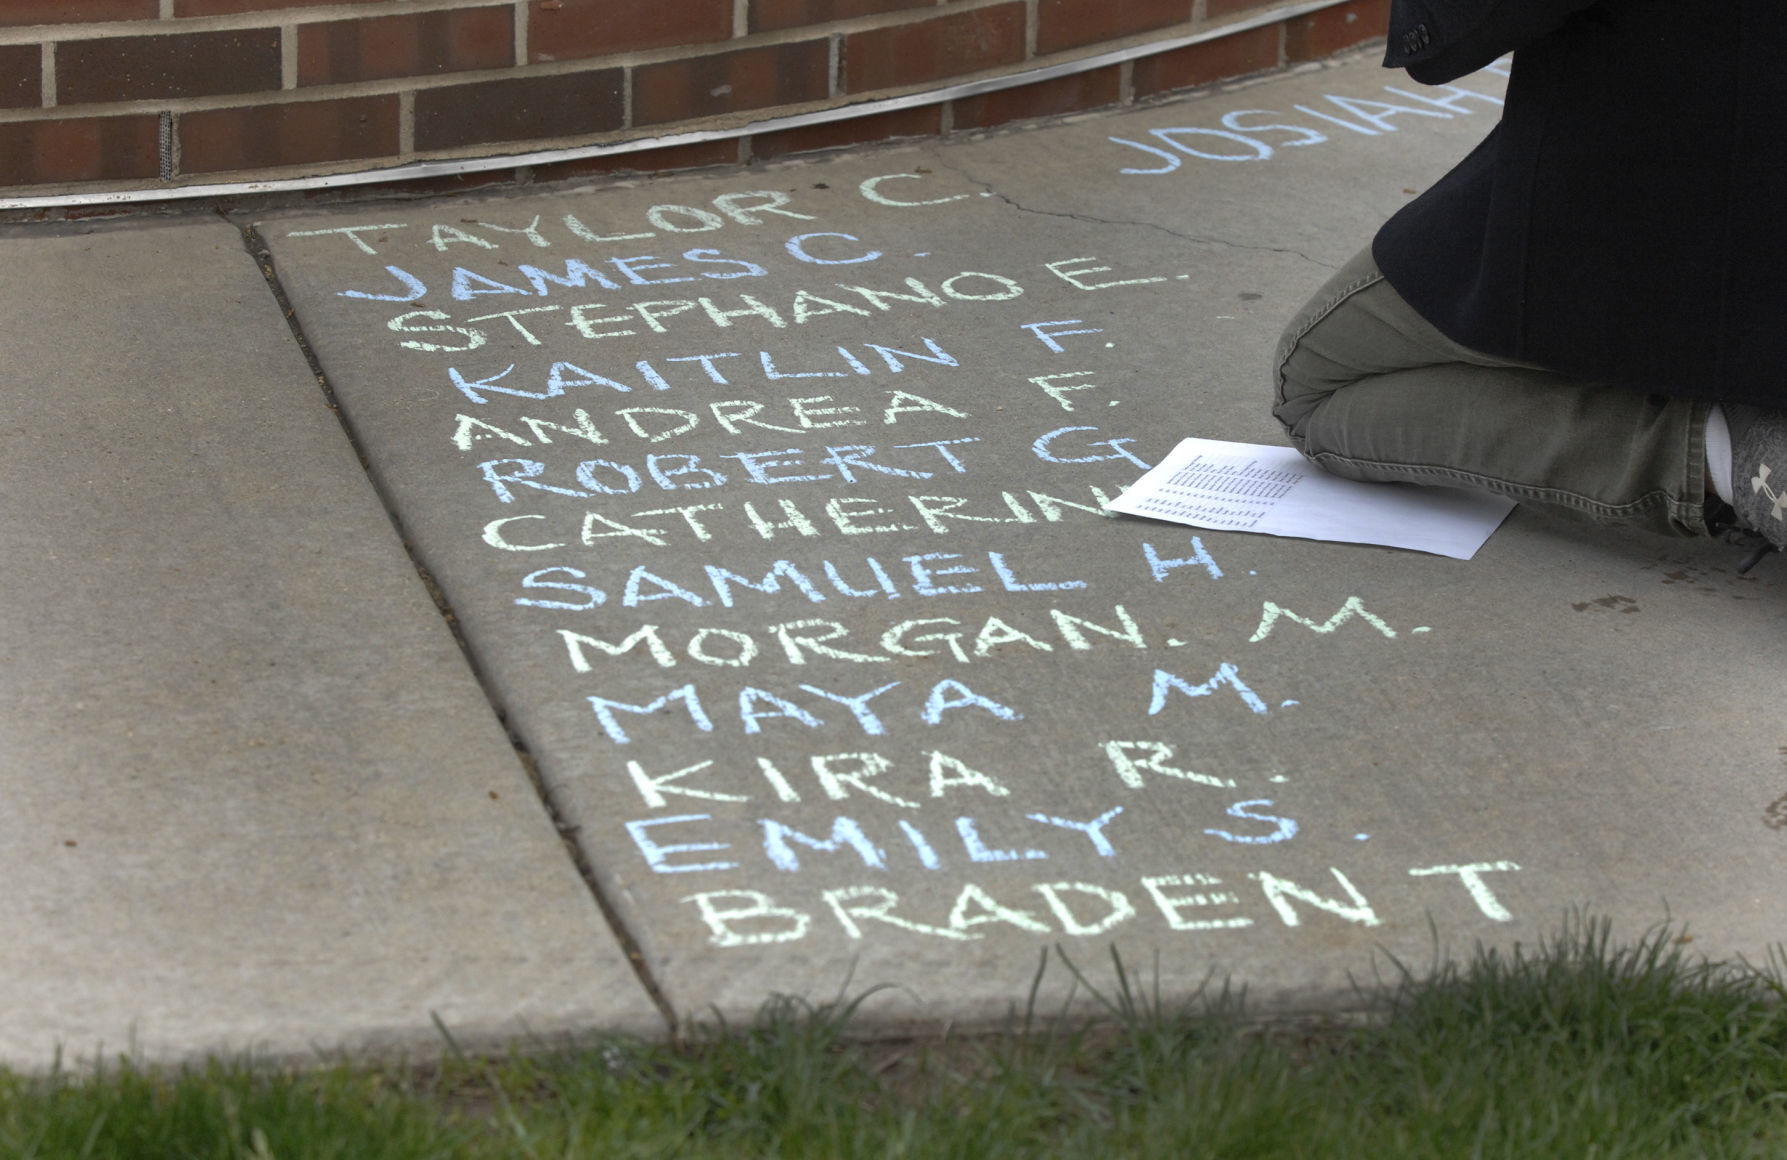 TAYLOR C.
JAMES C.
STEPHANO E.
KAITLIN F.
ANDREA F.
ROBERT G
CATHERIN
SAMUEL H.
MORGAN. M.
MAYA M.
KIRA R.
EMILY S.
BRADEN T
JOSIAH